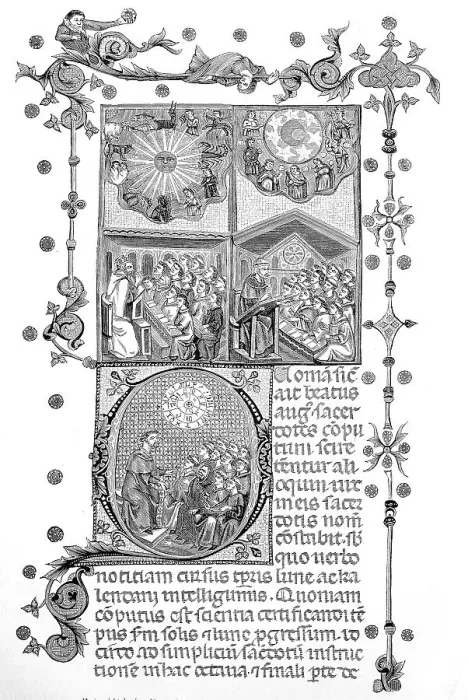 Uoniā sic̄
ait beatus
aug̃. sacer
dotes cōpu
tum scire
tenentur ali
oquin uix
eis sacer
dotis nom̄
cōstabit. sb̃
quo uerbo
notitiam cursus tp̄ris lune ac ka
lendarij intelligimus. Quoniam
cōputus est scientia certificandi tē
pus s̄m solis ⁊ lune p̄gressum. id
circo ad simplicium sac̄dotū instruc
tionē in hac octaua. ⁊ finali p̄te de